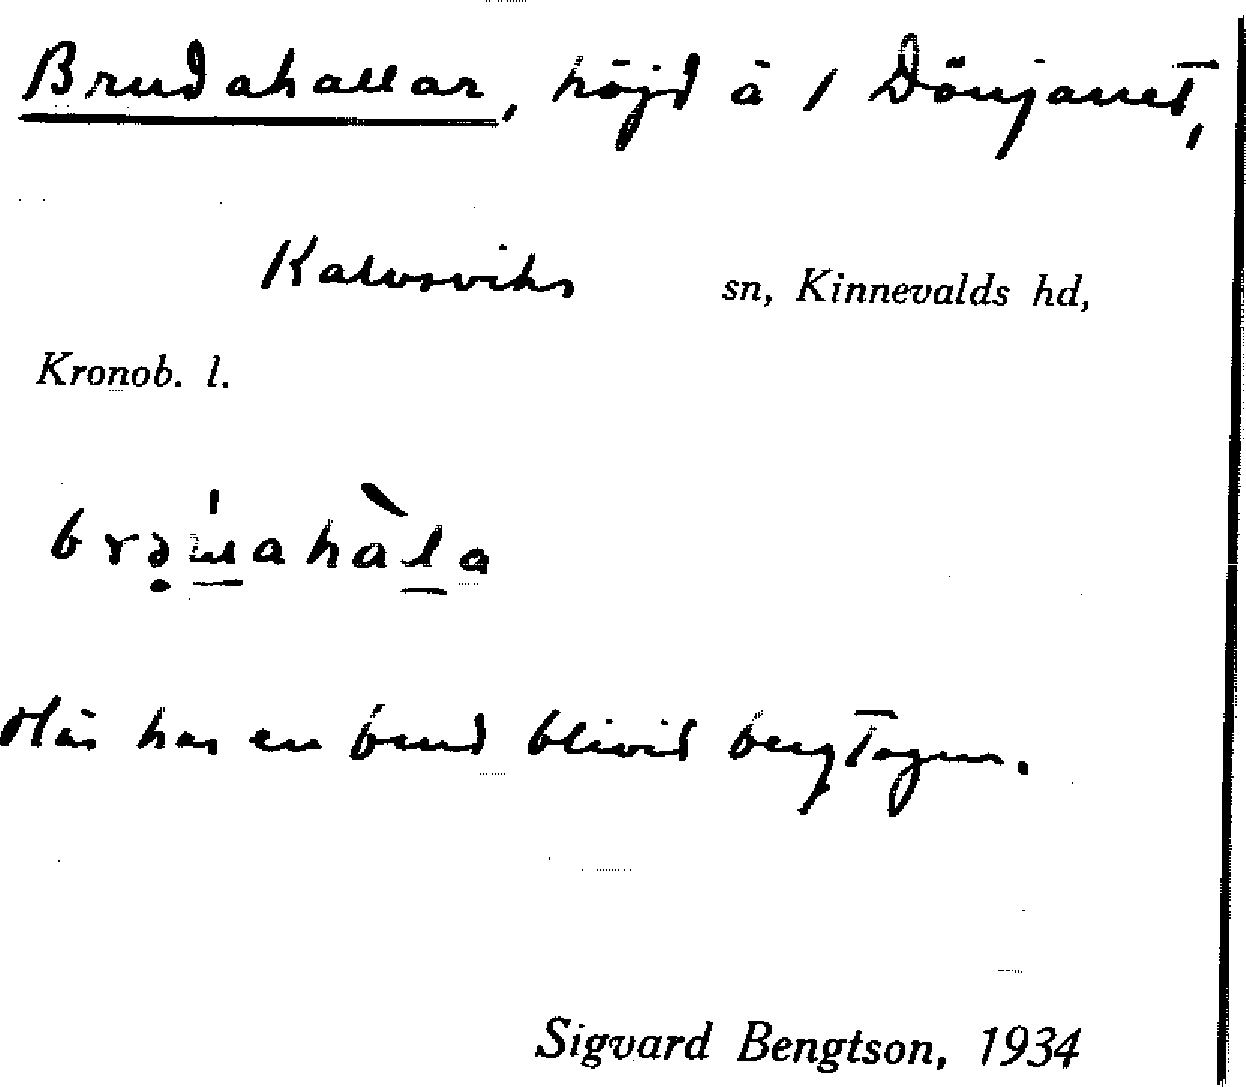 Brudahallar, höjd å 1 Dönjarret,
Kalvsviks sn, Kinnevalds hd,
Kronob. l.
Här har en brud blivid bergtagen.
Sigvard Bengtson, 1934